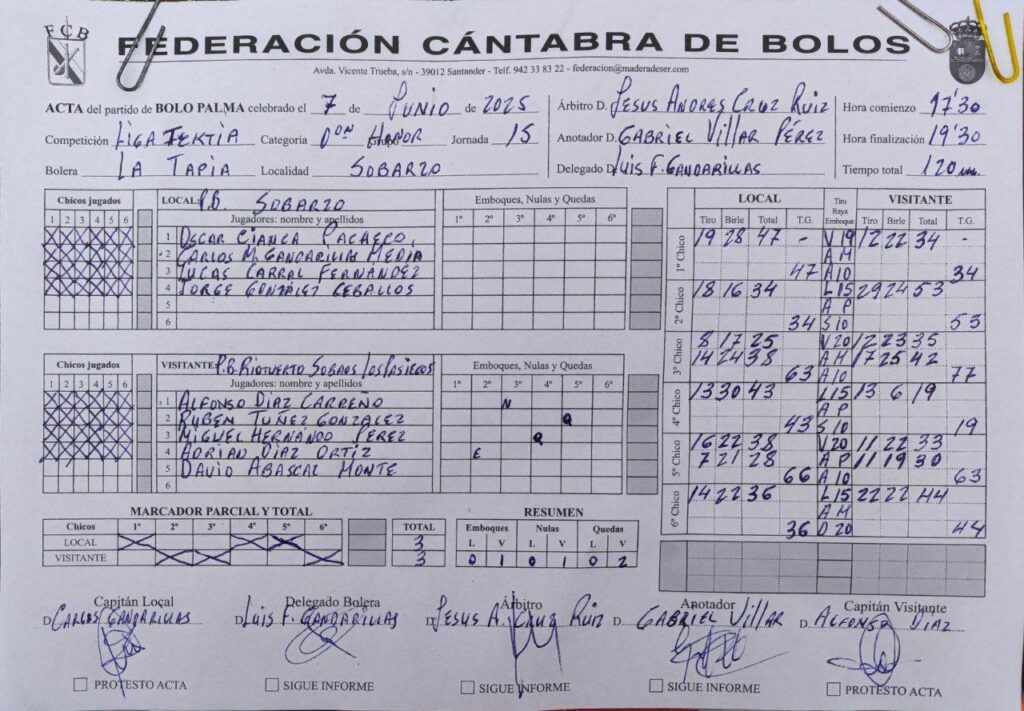 FCB
FEDERACIÓN CÁNTABRA DE BOLOS
Avda. Vicente Trueba, s/n - 39012 Santander - Telf. 942 33 83 22 - federacion@maderadeser.com
ACTA del partido de BOLO PALMA celebrado el 7 de JUNIO de 2025
Competición LIGA TERTIA Categoría Dᵒⁿ HONOR Jornada 15
Bolera LA TAPIA Localidad SOBARZO
Árbitro D. JESUS ANDRES CRUZ RUIZ
Anotador D. GABRIEL VILLAR PÉREZ
Delegado D. LUIS F. GANDARILLAS
Hora comienzo 17'30
Hora finalización 19'30
Tiempo total 120 m.
Chicos jugados
1 2 3 4 5 6
LOCAL: P.B. SOBARZO
Jugadores: nombre y apellidos
1 OSCAR CIANCA PACHECO
2 CARLOS M. GANDARILLAS MEDIA
3 LUCAS CARRAL FERNÁNDEZ
4 JORGE GONZÁLEZ CEBALLOS
5
6
Emboques, Nulas y Quedas
1º 2º 3º 4º 5º 6º
Chicos jugados
1 2 3 4 5 6
VISITANTE: P.B. RIOTUERTO SOBAOS LOS PASIEGOS
Jugadores: nombre y apellidos
1 ALFONSO DIAZ CARRENO
2 RUBEN TUÑEZ GONZALEZ
3 MIGUEL HERNANDO PEREZ
4 ADRIAN DIAZ ORTIZ
5 DAVID ABASCAL MONTE
6
Emboques, Nulas y Quedas
1º 2º 3º 4º 5º 6º
N
Q
Q
E
LOCAL Tiro Raya Emboque VISITANTE
Tiro Birle Total T.G. Tiro Birle Total T.G.
1º Chico
19 28 47 - V 19 12 22 34 -
A M
47 A 10 34
2º Chico
18 16 34 L 15 29 24 53
A P
34 S 10 53
3º Chico
8 17 25 V 20 12 23 35
14 24 38 A M 17 25 42
63 A 10 77
4º Chico
13 30 43 L 15 13 6 19
A P
43 S 10 19
5º Chico
16 22 38 V 20 11 22 33
7 21 28 A P 11 19 30
66 A 10 63
6º Chico
14 22 36 L 15 22 22 44
A M
36 D 20 44
MARCADOR PARCIAL Y TOTAL
Chicos 1º 2º 3º 4º 5º 6º TOTAL
LOCAL 3
VISITANTE 3
RESUMEN
Emboques Nulas Quedas
L V L V L V
0 1 0 1 0 2
Capitán Local
D. CARLOS GANDARILLAS
Delegado Bolera
D. LUIS F. GANDARILLAS
Árbitro
D. JESUS A. CRUZ RUIZ
Anotador
D. GABRIEL VILLAR
Capitán Visitante
D. ALFONSO DIAZ
PROTESTO ACTA
SIGUE INFORME
SIGUE INFORME
SIGUE INFORME
PROTESTO ACTA